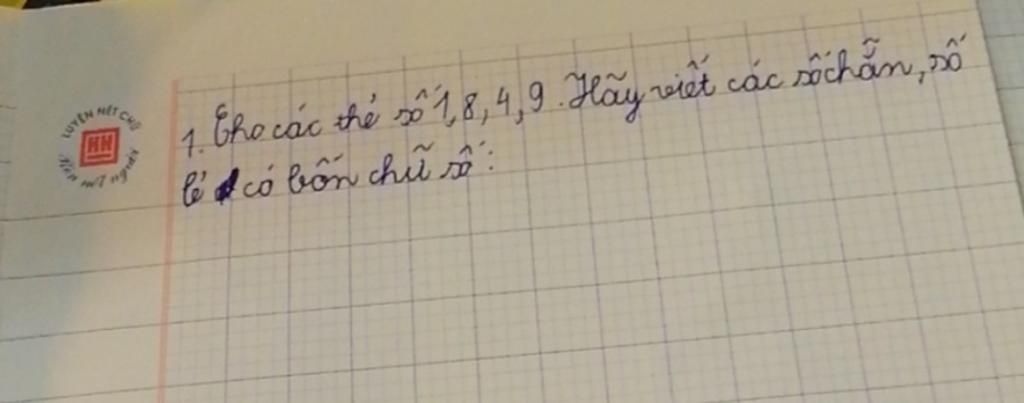 LUYỆN NÉT CHỮ
Rèn nết người
1. Cho các thẻ số 1, 8, 4, 9. Hãy viết các số chẵn, số
lẻ có bốn chữ số: